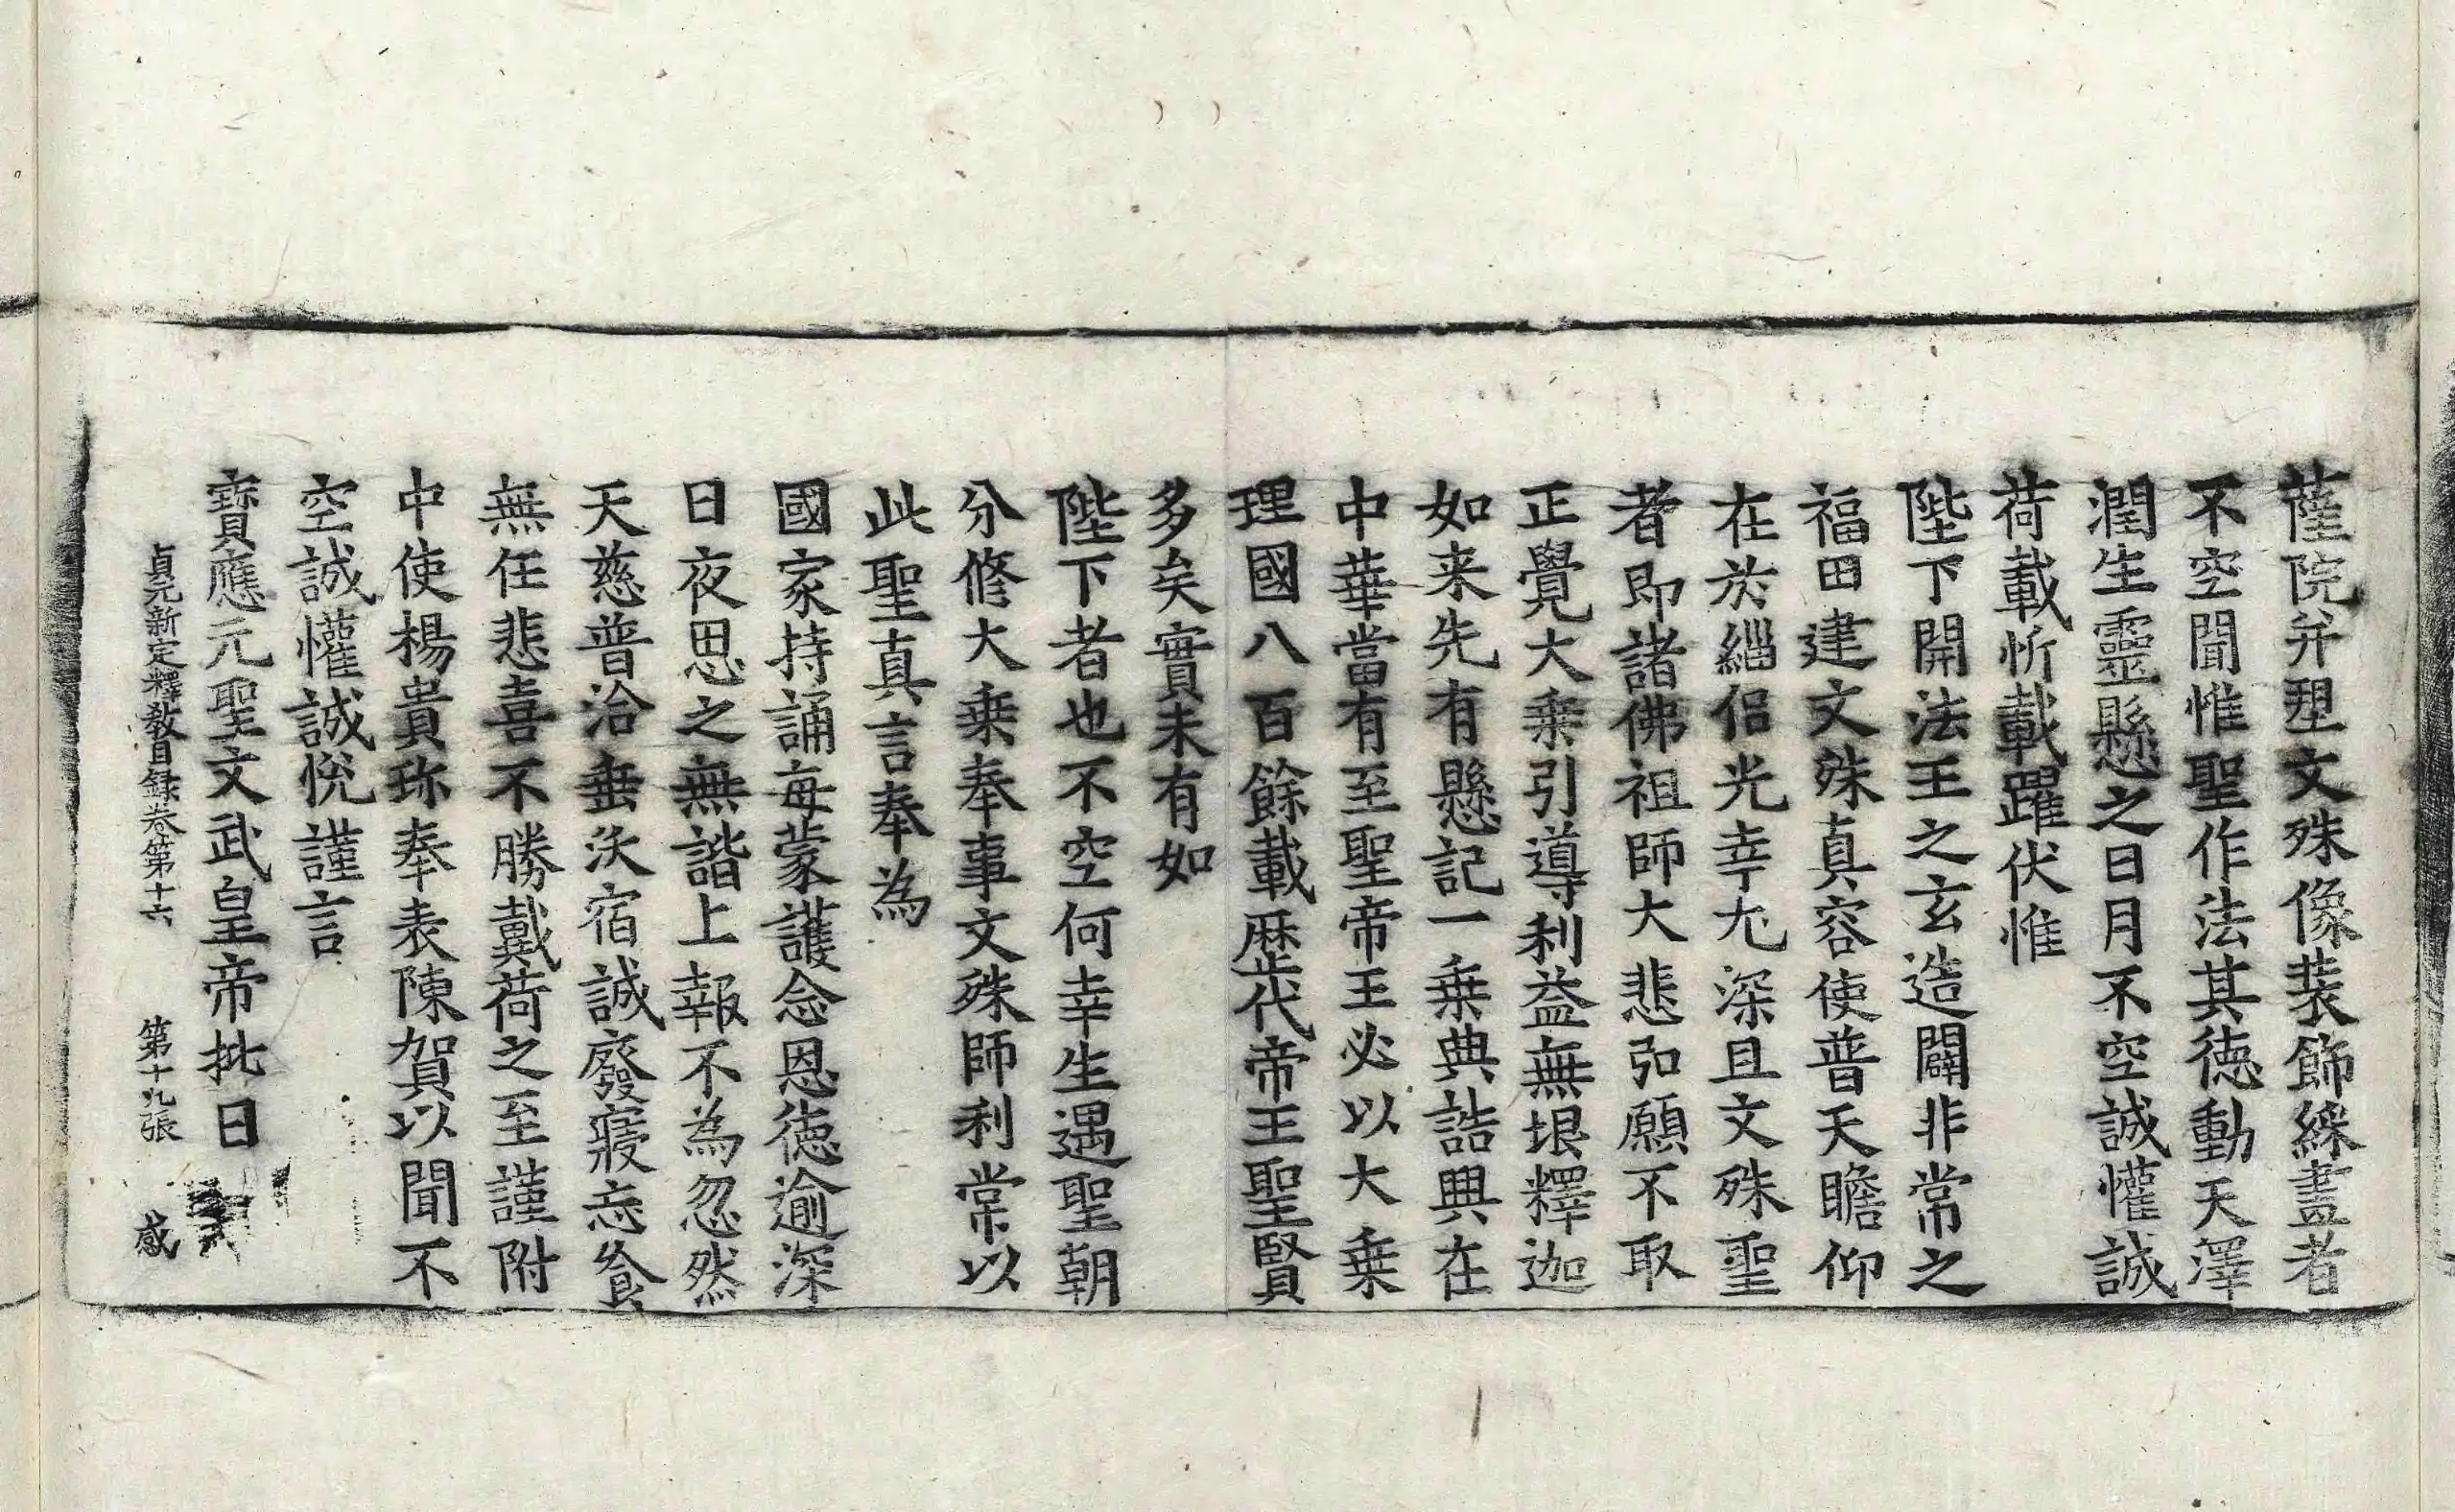 薩院并塑文殊像装飾綵畫者
不空聞惟聖作法其徳動天澤
潤生靈懸之日月不空誠懽誠
荷載忻載躍伏惟
陛下開法王之玄造闢非常之
福田建文殊真容使普天瞻仰
在於緇侣光幸尤深且文殊聖
者即諸佛祖師大悲弘願不取
正覺大乗引導利益無垠釋迦
如来先有懸記一乗典誥興在
中華當有至聖帝王必以大乗
理國八百餘載歴代帝王聖賢
多矣實未有如
陛下者也不空何幸生遇聖朝
分修大乗奉事文殊師利常以
此聖真言奉為
國家持誦每蒙護念恩徳逾深
日夜思之無諧上報不為忽然
天慈普洽垂沃宿誠廢寢忘飡
無任悲喜不勝戴荷之至謹附
中使楊貴珎奉表陳賀以聞不
空誠懽誠悅謹言
寶應元聖文武皇帝批曰
貞元新定釋教目録卷第十六 第十九張 感